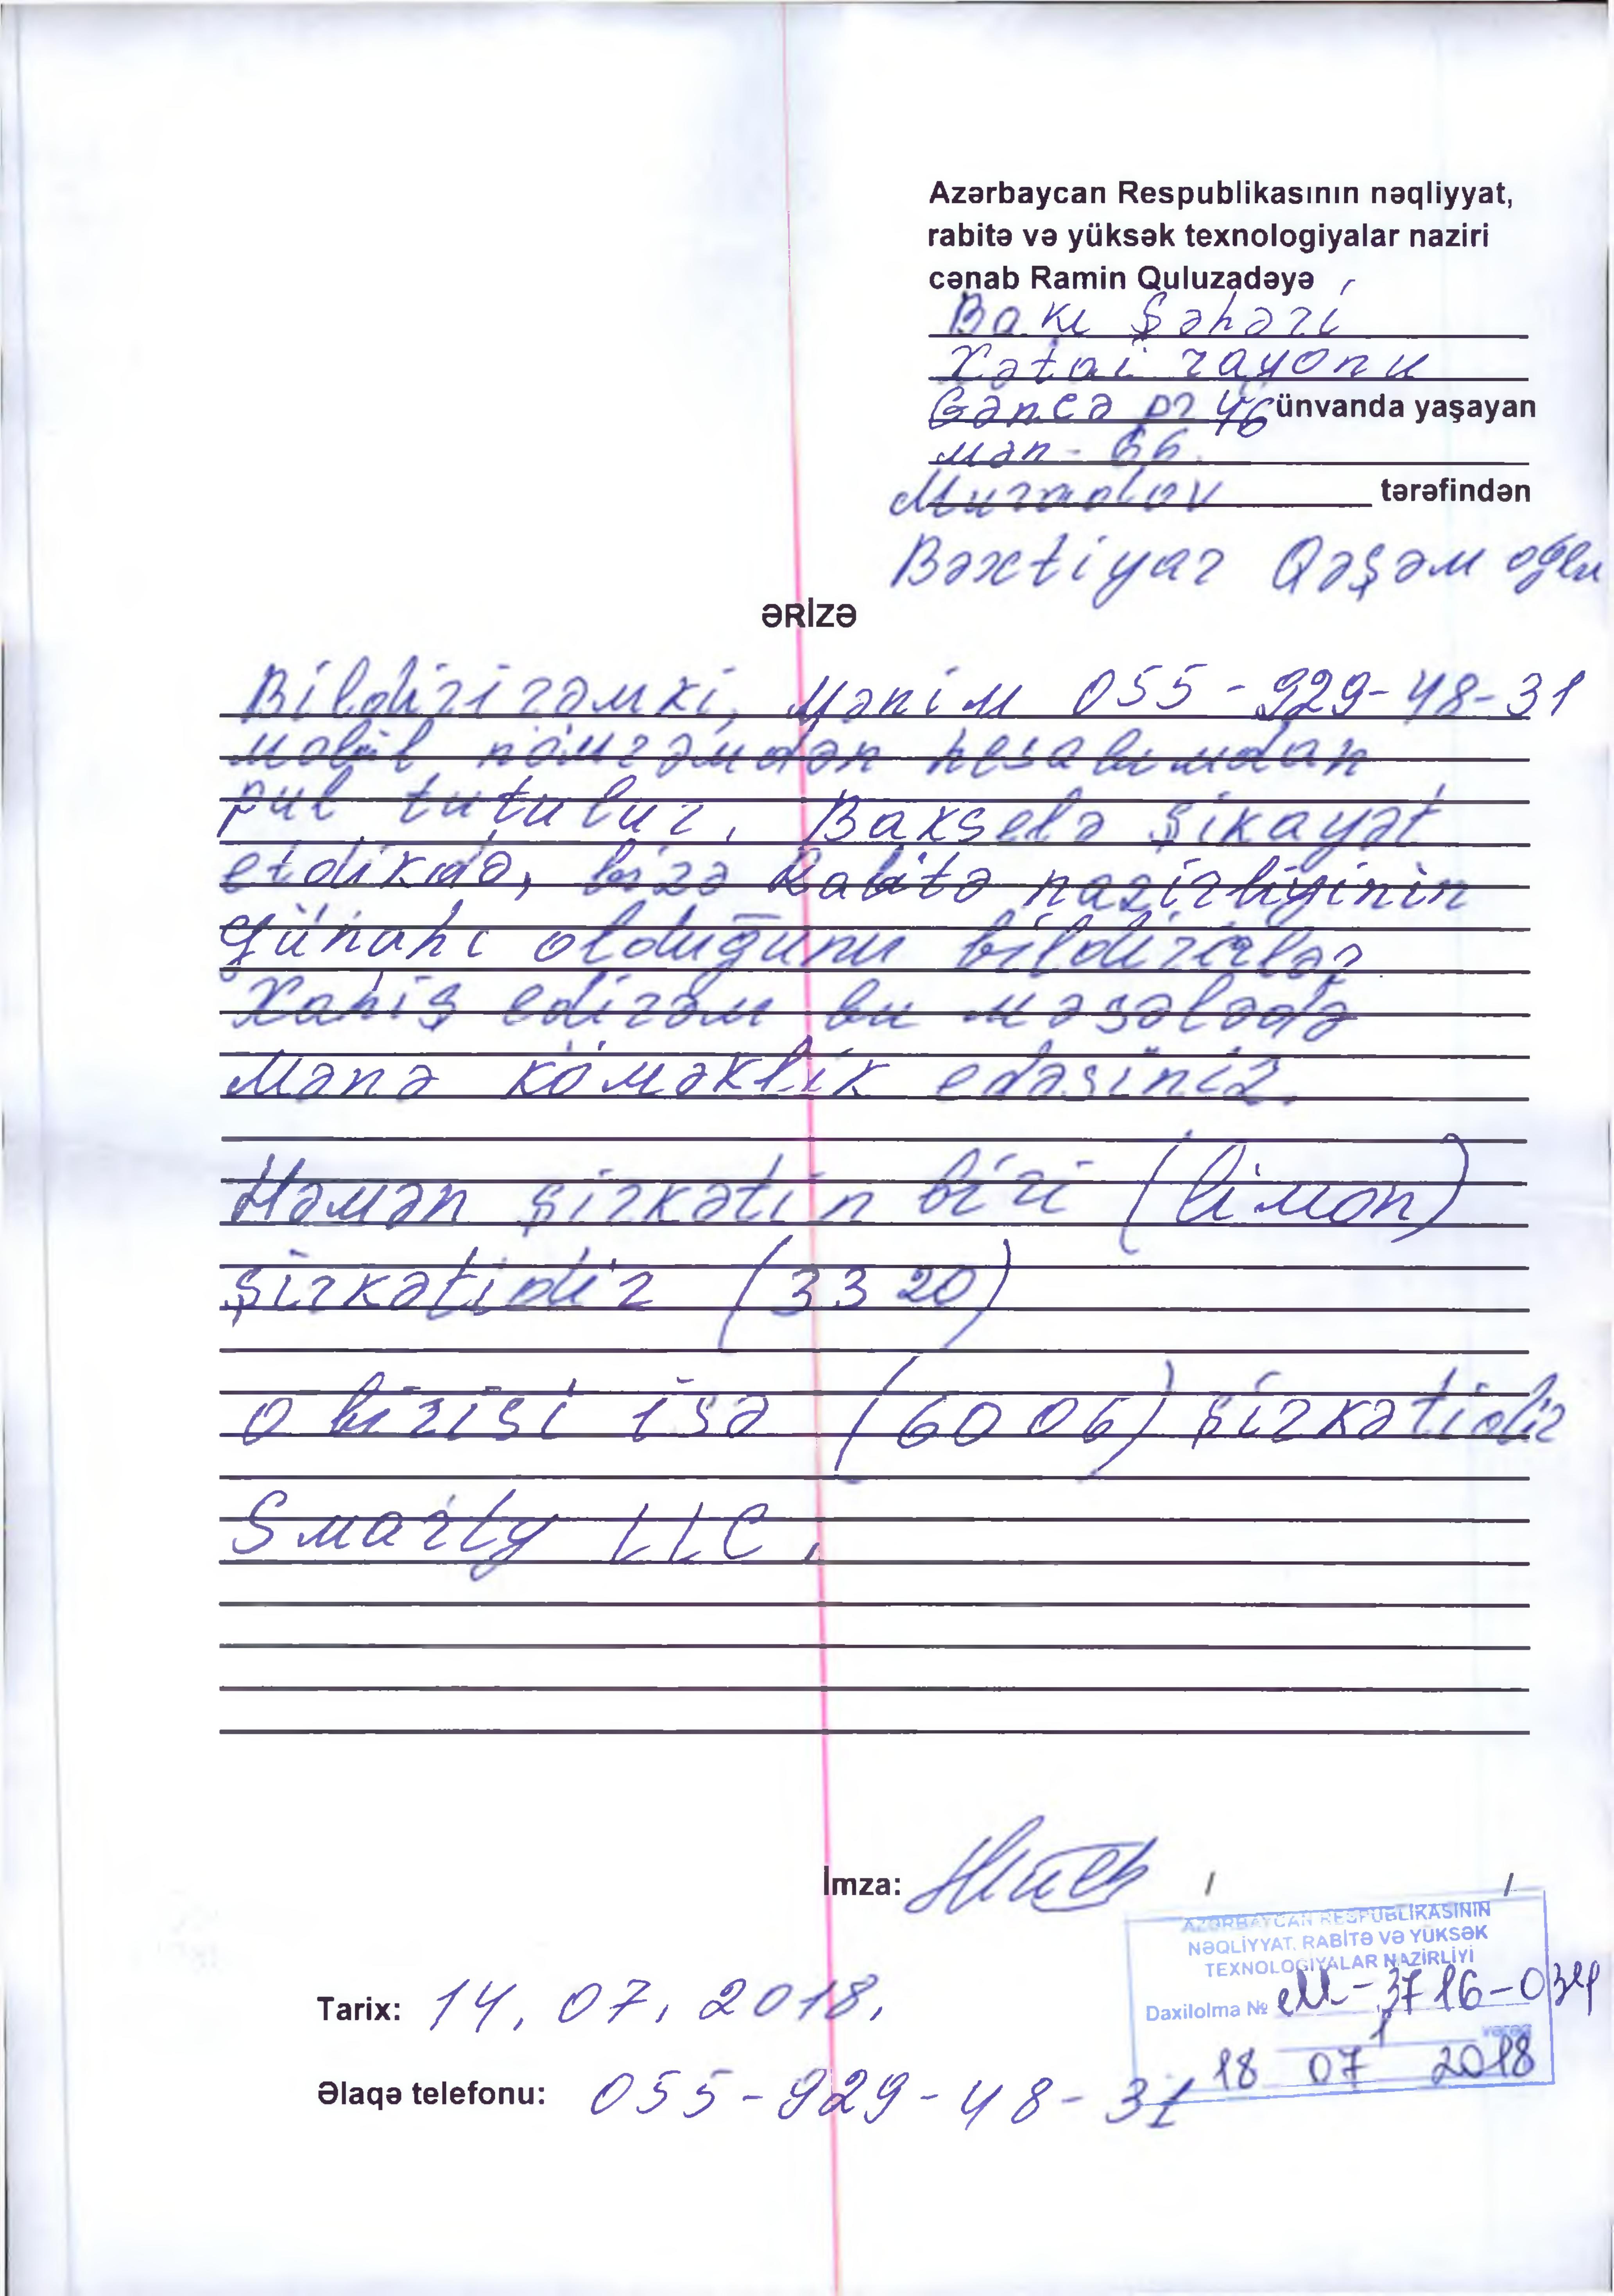 Azərbaycan Respublikasının nəqliyyat,
rabitə və yüksək texnologiyalar naziri
cənab Ramin Quluzadəyə
Bakı Şəhəri
Xətai rayonu
Gəncə pr 46 ünvanda yaşayan
mən - 66.
Muradov tərəfindən
Bəxtiyar Qəşəm oğlu
ƏRİZƏ
Bildirirəmki, Mənim 055-929-48-31
mobil nömrəmdən hesabımdan
pul tutulur. Bakselə şikayət
etdikdə, bizə Rabitə nazirliyinin
günahı olduğunu bildirirlər
Xahiş edirəm bu məsələdə
Mənə köməklik edəsiniz.
Həmən şirkətin biri (limon)
şirkətidir (3320)
o birisi isə (6006) şirkətidir
Smarty LLC.
İmza:
AZƏRBAYCAN RESPUBLİKASININ
NƏQLİYYAT, RABİTƏ VƏ YÜKSƏK
TEXNOLOGİYALAR NAZİRLİYİ
Daxilolma №
vərəq
18 07 2018
Tarix: 14.07.2018.
Əlaqə telefonu: 055-929-48-31